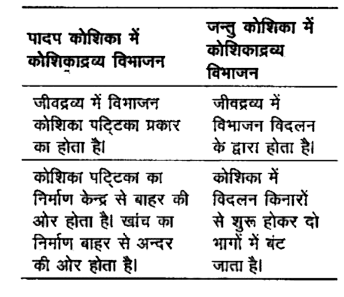 पादप कोशिका में
कोशिकाद्रव्य विभाजन
जन्तु कोशिका में
कोशिकाद्रव्य
विभाजन
जीवद्रव्य में विभाजन
कोशिका पट्टिका प्रकार
का होता है।
जीवद्रव्य में
विभाजन विदलन
के द्वारा होता है।
कोशिका पट्टिका का
निर्माण केन्द्र से बाहर की
ओर होता है। खांच का
निर्माण बाहर से अन्दर
की ओर होता है।
कोशिका में
विदलन किनारों
से शुरू होकर दो
भागों में बंट
जाता है।